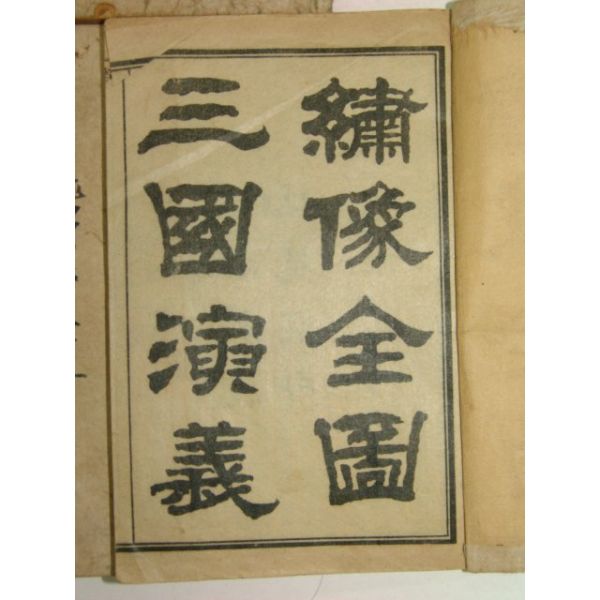 繡像全圖
三國演義